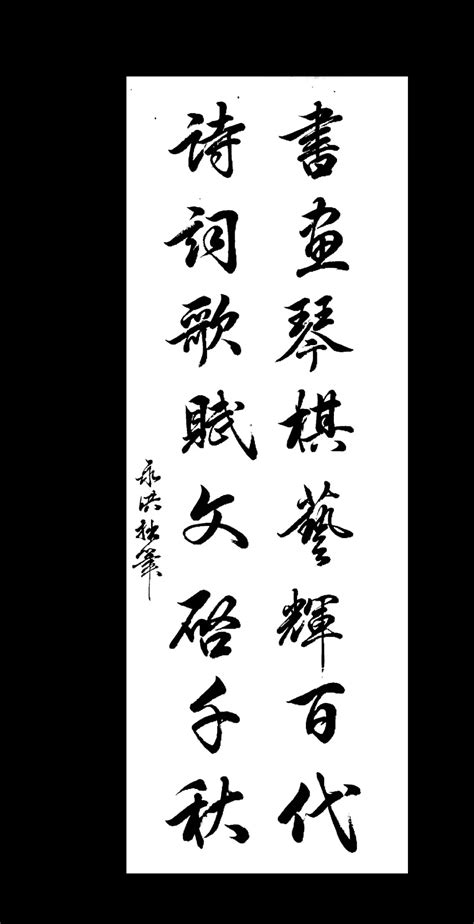 書畫琴棋藝輝百代
詩詞歌賦文啓千秋
永洪拙筆